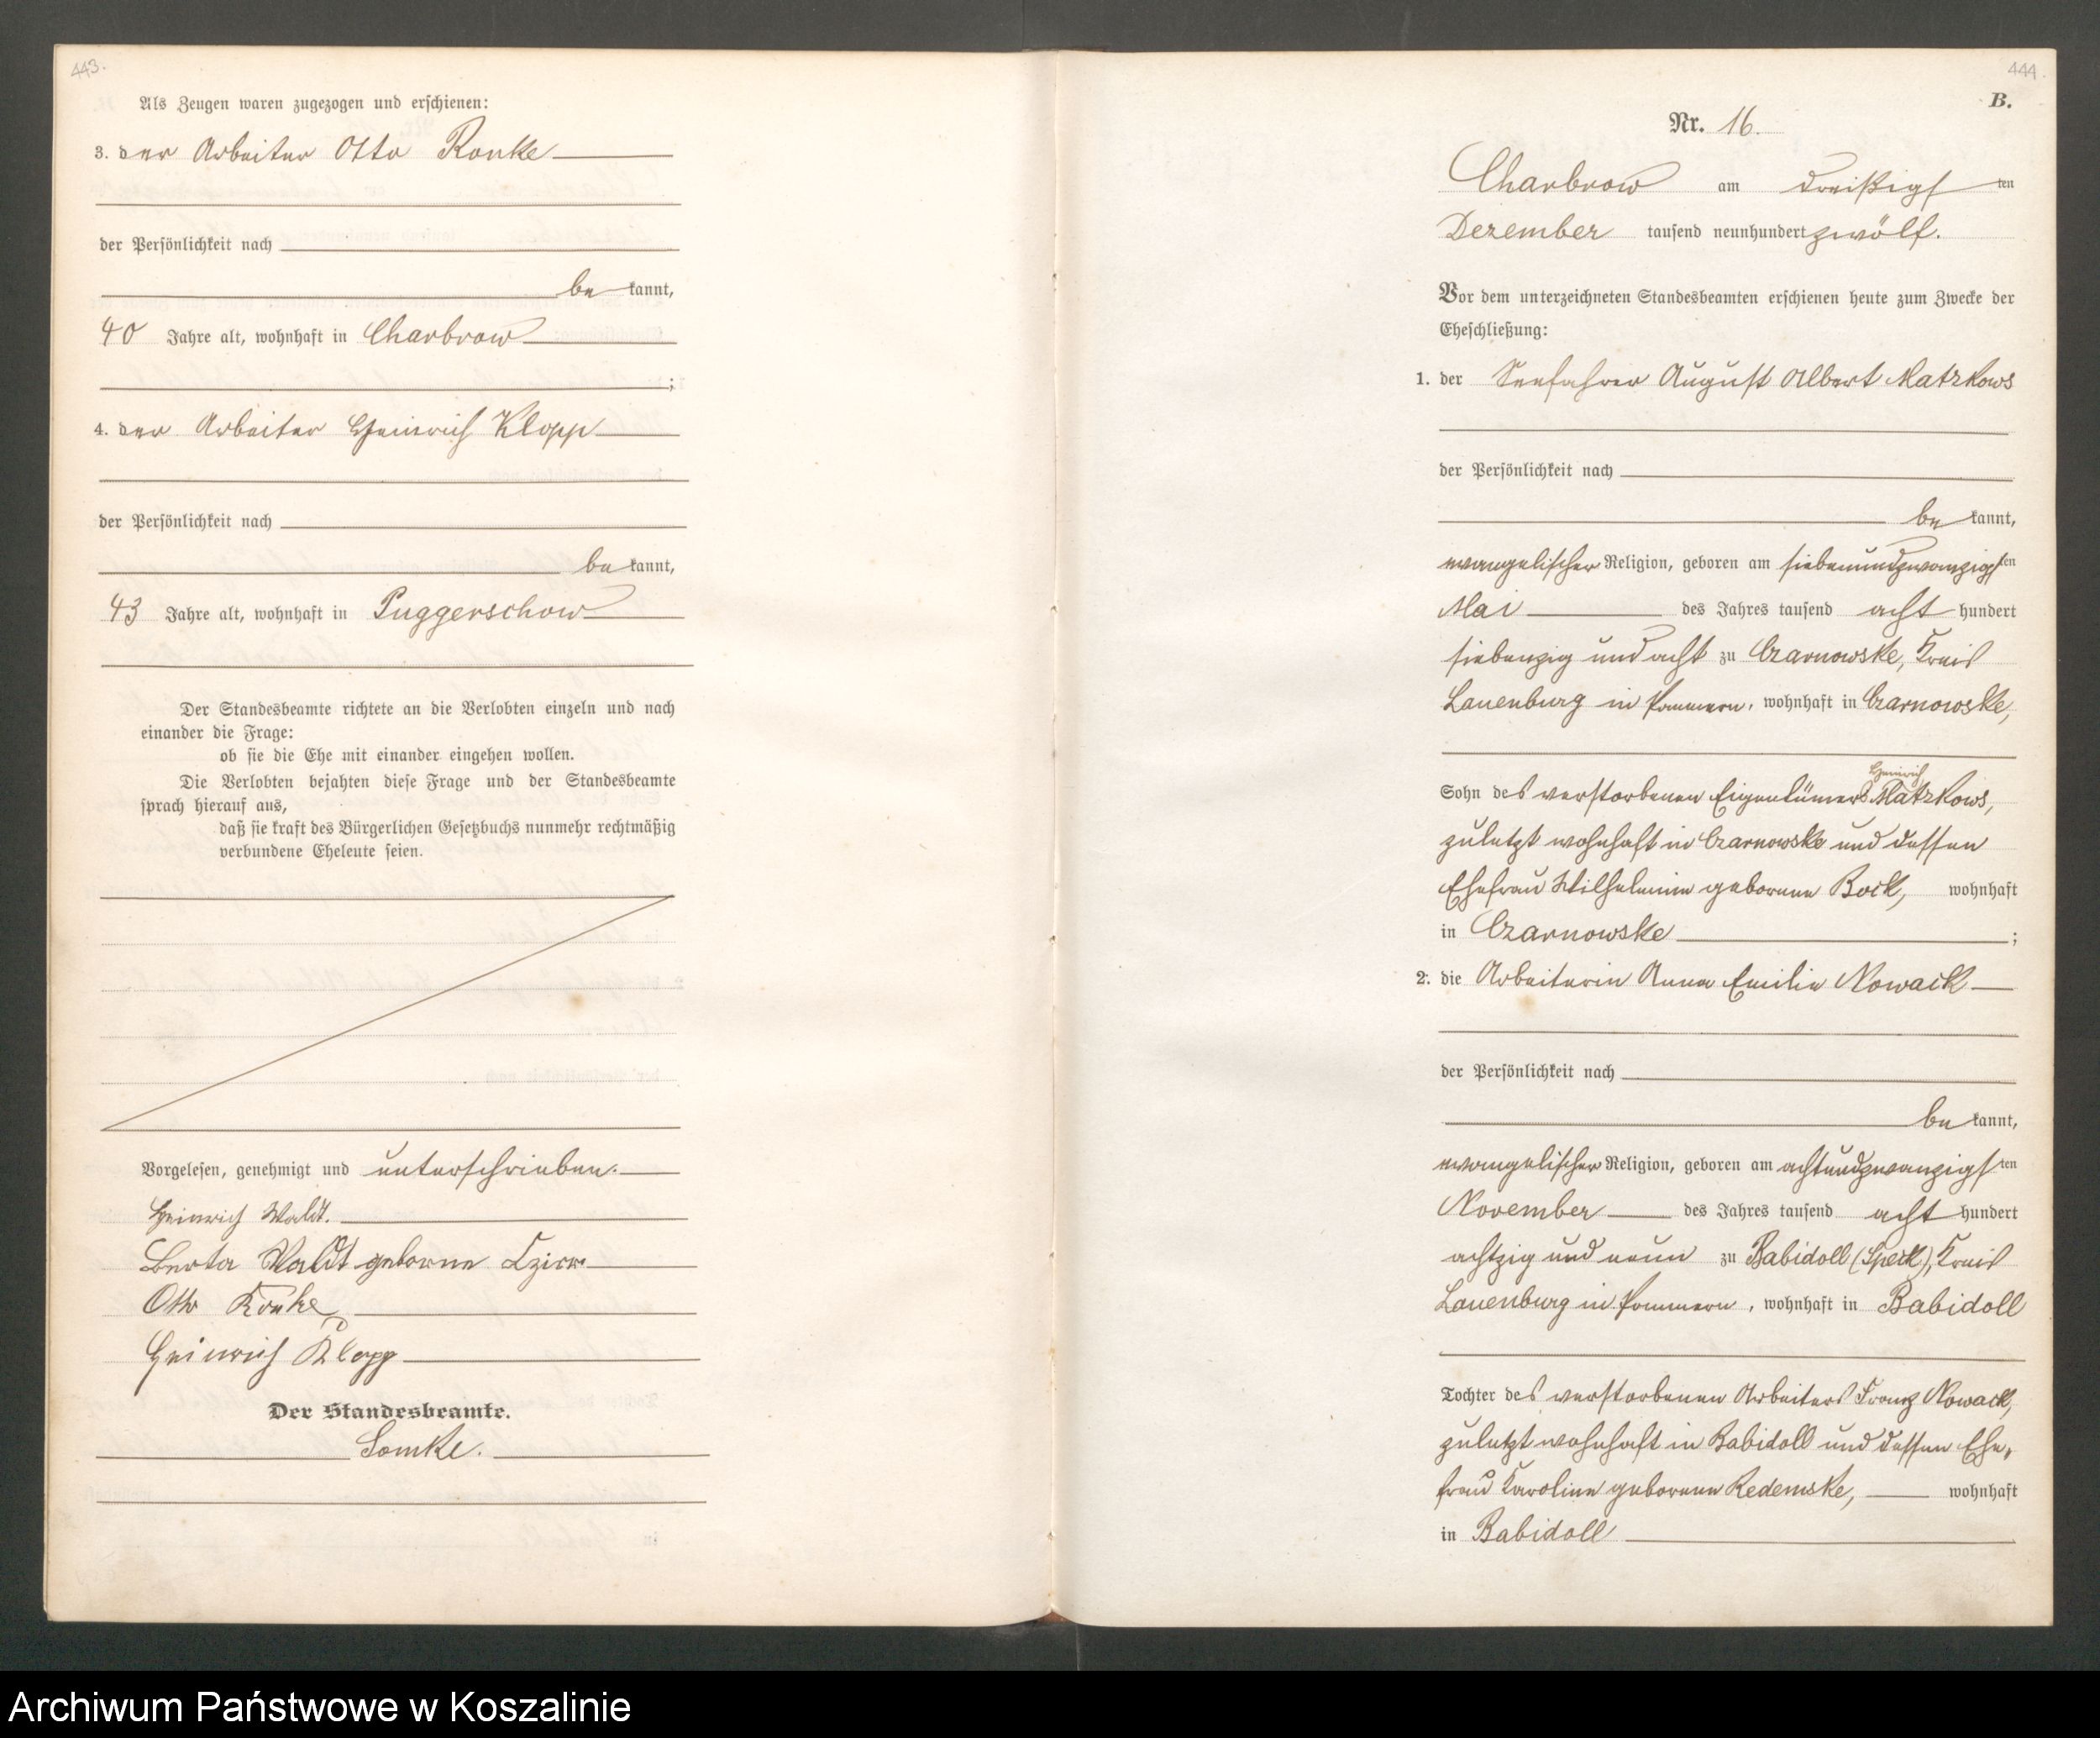 443.
Als Zeugen waren zugezogen und erschienen:
3. der Arbeiter Otto Ronke
der Persönlichkeit nach
be kannt,
40 Jahre alt, wohnhaft in Charbrow
;
4. der Arbeiter Heinrich Klopp
der Persönlichkeit nach
be kannt,
43 Jahre alt, wohnhaft in Puggerschow
Der Standesbeamte richtete an die Verlobten einzeln und nach
einander die Frage:
ob sie die Ehe mit einander eingehen wollen.
Die Verlobten bejahten diese Frage und der Standesbeamte
sprach hierauf aus,
daß sie kraft des Bürgerlichen Gesetzbuchs nunmehr rechtmäßig
verbundene Eheleute seien.
Vorgelesen, genehmigt und unterschrieben.
Heinrich Waldt.
Berta Waldt geborne
Otto Ronke
Heinrich Klopp
Der Standesbeamte.
Lomke.
444.
B.
Nr. 16.
Charbrow am dreißigs ten
Dezember tausend neunhundert zwölf.
Vor dem unterzeichneten Standesbeamten erschienen heute zum Zwecke der
Eheschließung:
1. der Seefahrer August Albert Matzkows
der Persönlichkeit nach
be kannt,
evangelischer Religion, geboren am siebenundzwanzigs ten
Mai des Jahres tausend acht hundert
siebenzig und acht zu Czarnowske, Kreis
Lauenburg in Pommern, wohnhaft in Czarnowske,
Heinrich
Sohn des verstorbenen Eigentümers Matzkows,
zuletzt wohnhaft in Czarnowske und dessen
Ehefrau Wilhelmine geborene Bock, wohnhaft
in Czarnowske ;
2. die Arbeiterin Anna Emilie Nowack
der Persönlichkeit nach
be kannt,
evangelischer Religion, geboren am achtundzwanzigs ten
November des Jahres tausend acht hundert
achtzig und neun zu Babidoll (Speck), Kreis
Lauenburg in Pommern, wohnhaft in Babidoll
Tochter des verstorbenen Arbeiters Franz Nowack,
zuletzt wohnhaft in Babidoll und dessen Ehe-
frau Karoline geborene Redemske, wohnhaft
in Babidoll
Archiwum Państwowe w Koszalinie